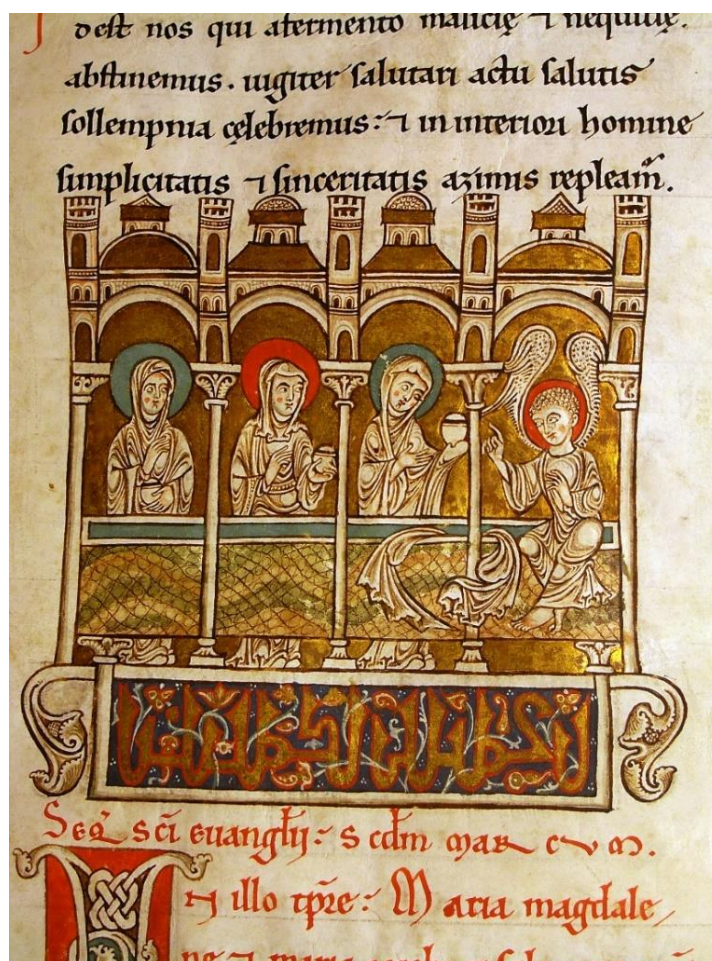 dest nos qui afermento malicię ⁊ nequitię.
abstinemus. iugiter salutari actu salutis
sollempnia cęlebremus: ⁊ in interiori homine
simplicitatis ⁊ sinceritatis azimis repleam̃.
Seq̃ sc̃i euangl̃ij: s cdm̃ mar cum.
In illo tp̃re: Maria magdale
ne ⁊ maria